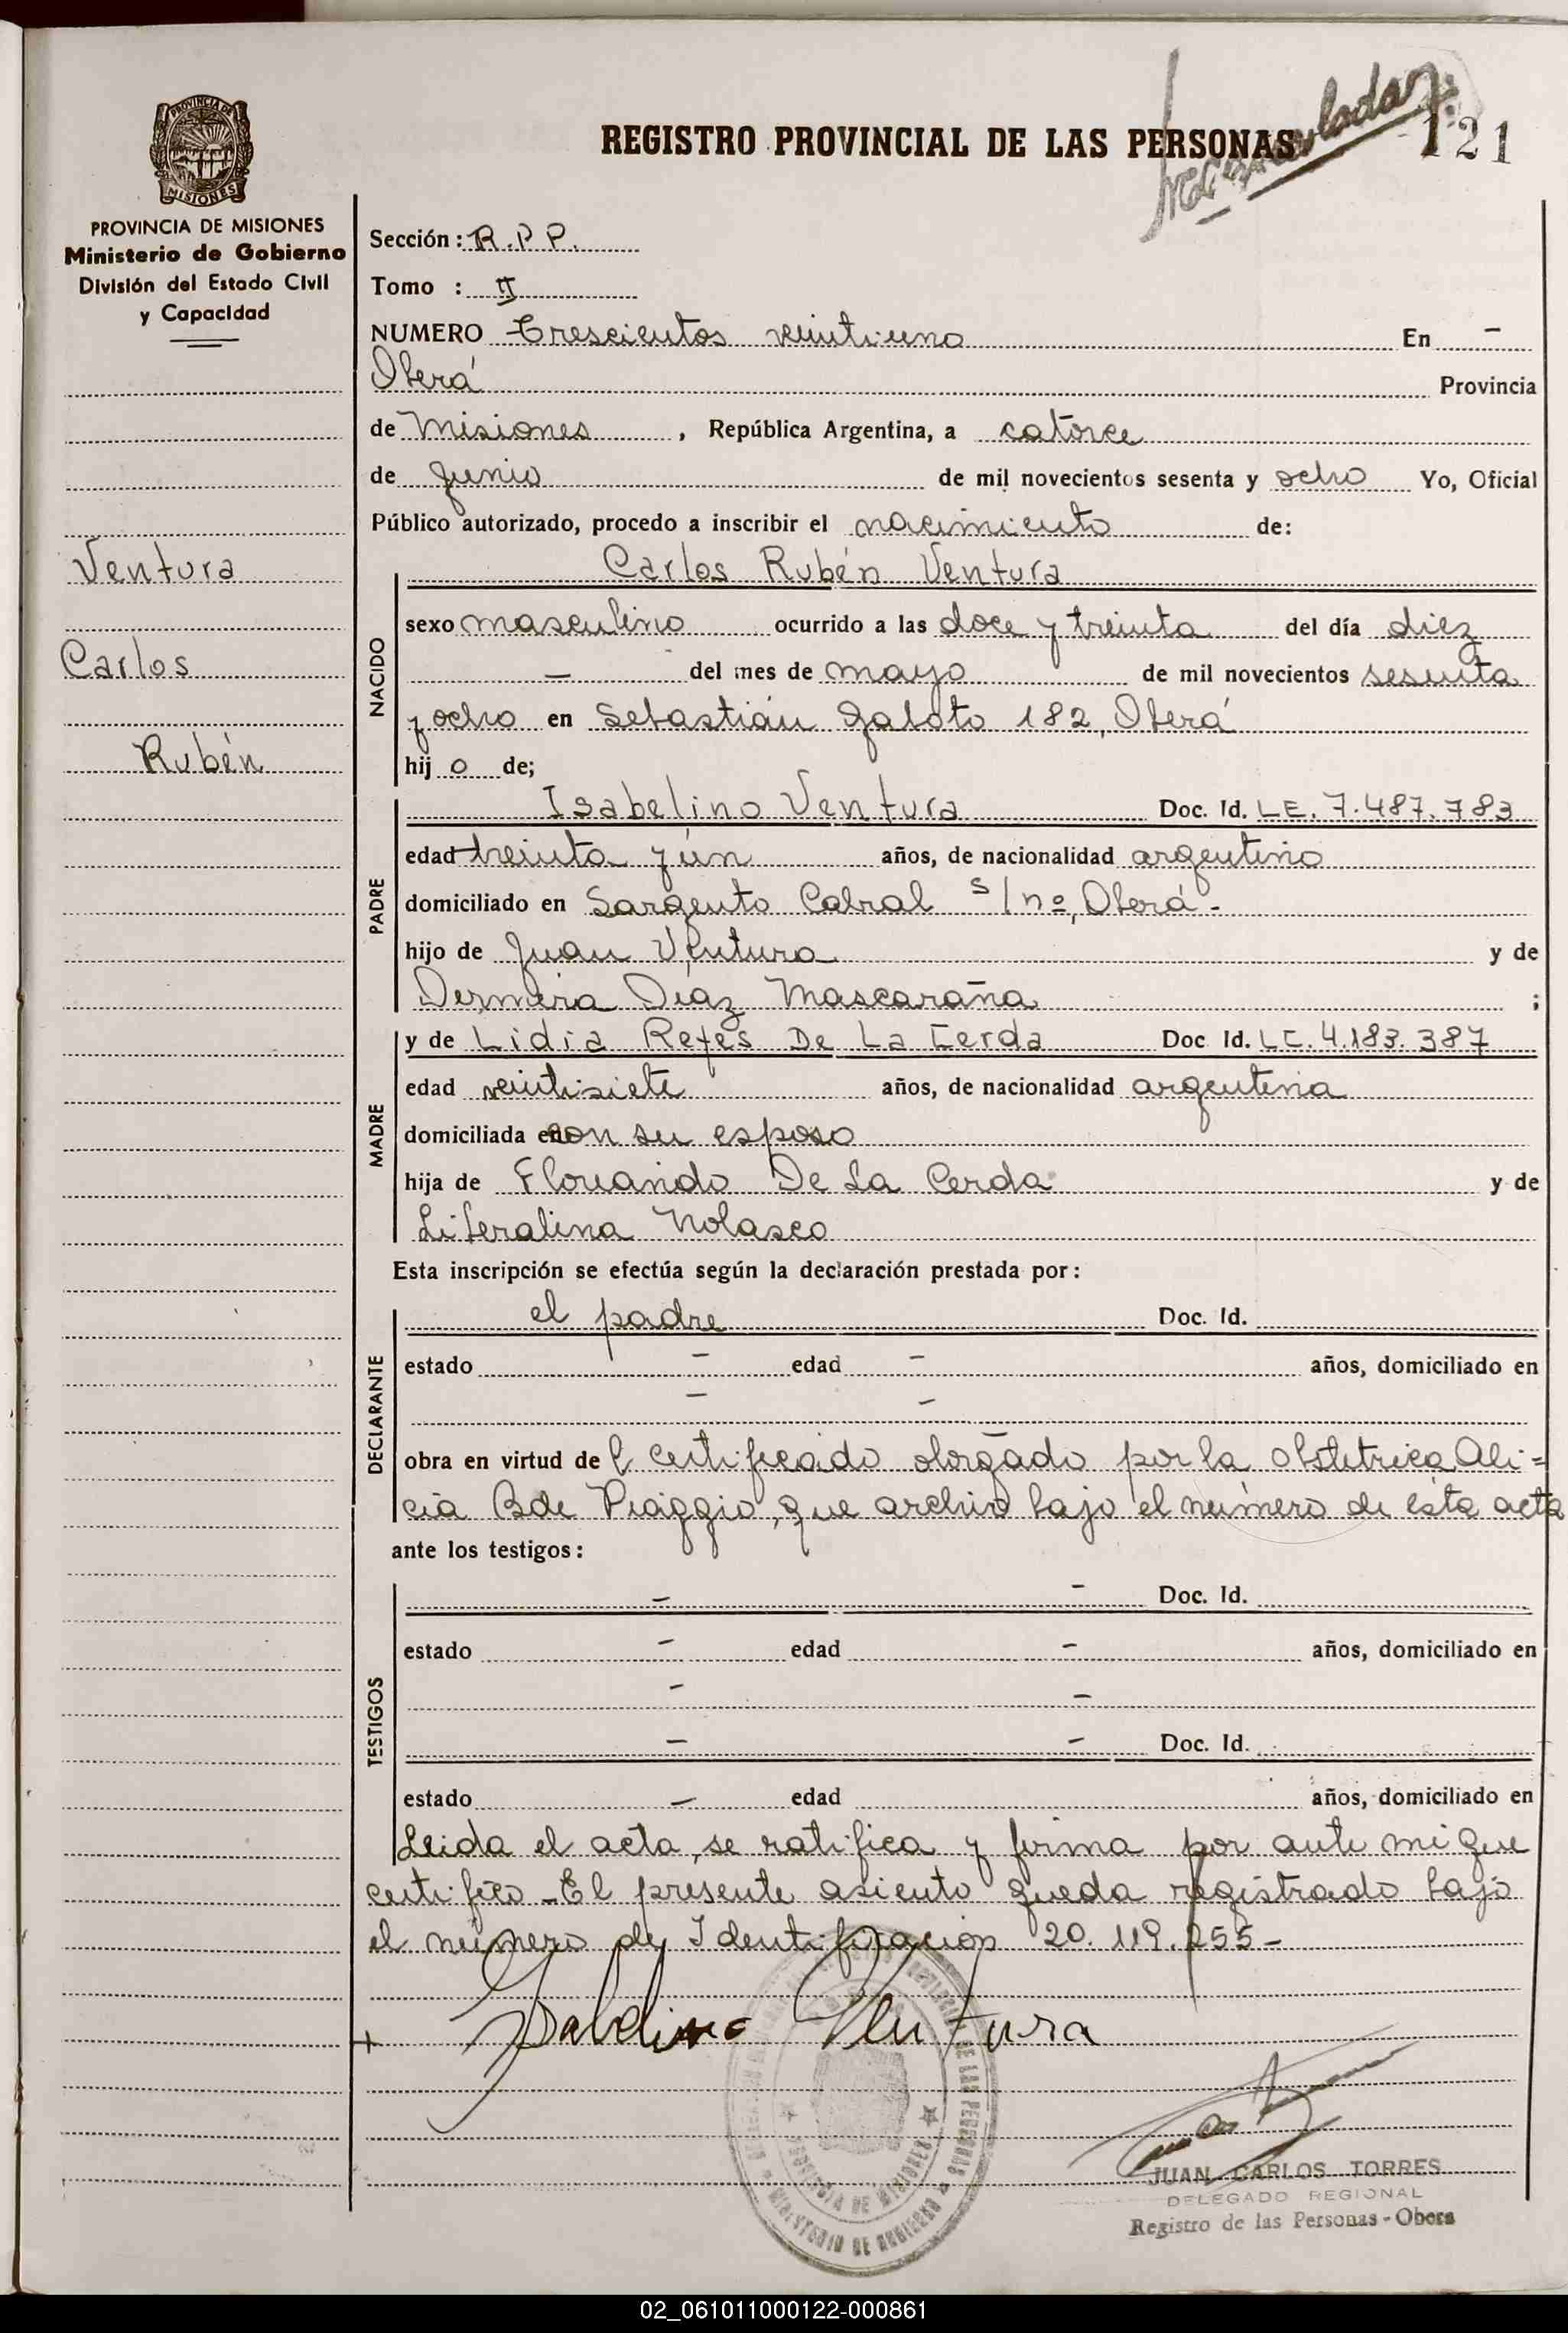 REGISTRO PROVINCIAL DE LAS PERSONAS
121
PROVINCIA DE
MISIONES
PROVINCIA DE MISIONES
Ministerio de Gobierno
División del Estado Civil
y Capacidad
Ventura
Carlos
Rubén
Sección: R.P.P.
Tomo : II
NUMERO Trescientos veintiuno En -
Oberá Provincia
de Misiones , República Argentina, a catorce
de Junio de mil novecientos sesenta y ocho Yo, Oficial
Público autorizado, procedo a inscribir el nacimiento de:
NACIDO
Carlos Rubén Ventura
sexo masculino ocurrido a las doce y treinta del día diez
- del mes de mayo de mil novecientos sesenta
y ocho en Sebastián Gaboto 182, Oberá
hij o de;
PADRE
Isabelino Ventura Doc. Id. LE. 7.487.783
edad treinta y ún años, de nacionalidad argentino
domiciliado en Sargento Cabral s/nº, Oberá-
hijo de Juan Ventura y de
Díaz Mascaraña ;
MADRE
y de Lidia Reyes De La Cerda Doc Id. LC. 4.183.387
edad veintisiete años, de nacionalidad argentina
domiciliada en con su esposo
hija de De La Cerda y de
Liberalina Nolasco
Esta inscripción se efectúa según la declaración prestada por:
DECLARANTE
el padre Doc. Id.
estado - edad - años, domiciliado en
- -
obra en virtud de l certificado otorgado por la obstetrica Ali=
cia B de Piaggio, que archivo bajo el número de ésta acta
ante los testigos:
TESTIGOS
- - Doc. Id.
estado - edad - años, domiciliado en
- -
- - Doc. Id.
estado - edad años, domiciliado en
Leida el acta, se ratifica y firma por ante mi que
certifico - El presente asiento queda registrado bajo
el número de Identificación 20.119.255-
Ventura
PROVINCIA DE MISIONES
MINISTERIO DE GOBIERNO
JUAN CARLOS TORRES
DELEGADO REGIONAL
Registro de las Personas - Obera
02_061011000122-000861